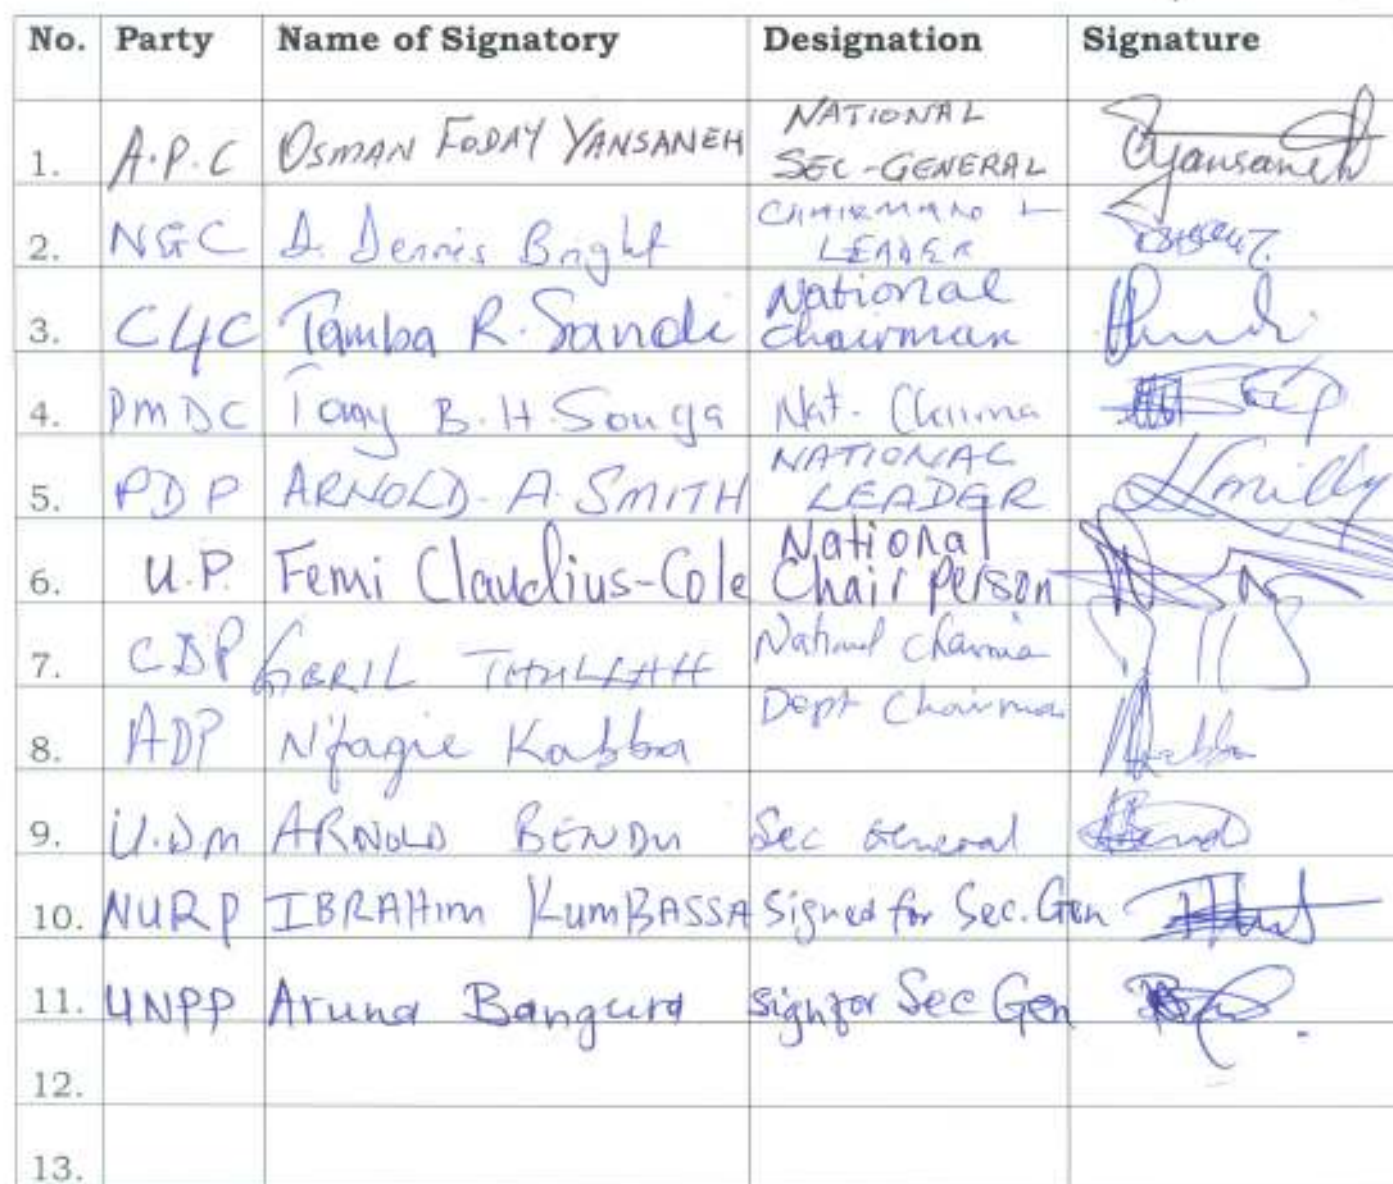 No. Party Name of Signatory Designation Signature
1. A.P.C OSMAN FODAY YANSANEH NATIONAL SEC-GENERAL Yansaneh
2. NGC D. Dennis Bright CHAIRMAN & LEADER
3. C4C Tamba R. Sandi National Chairman
4. PMDC Tony B.H. Songa Nat. Chairma
5. PDP ARNOLD A. SMITH NATIONAL LEADER
6. U.P. Femi Claudius-Cole National Chair person
7. CDP National
8. ADP N'fagie Kabba Dept Chairman
9. U.D.M ARNOLD BENDU Sec General
10. NURP IBRAHIM KUMBASSA Signed for Sec. Gen
11. UNPP Aruna Bangura sign for Sec Gen
12.
13.